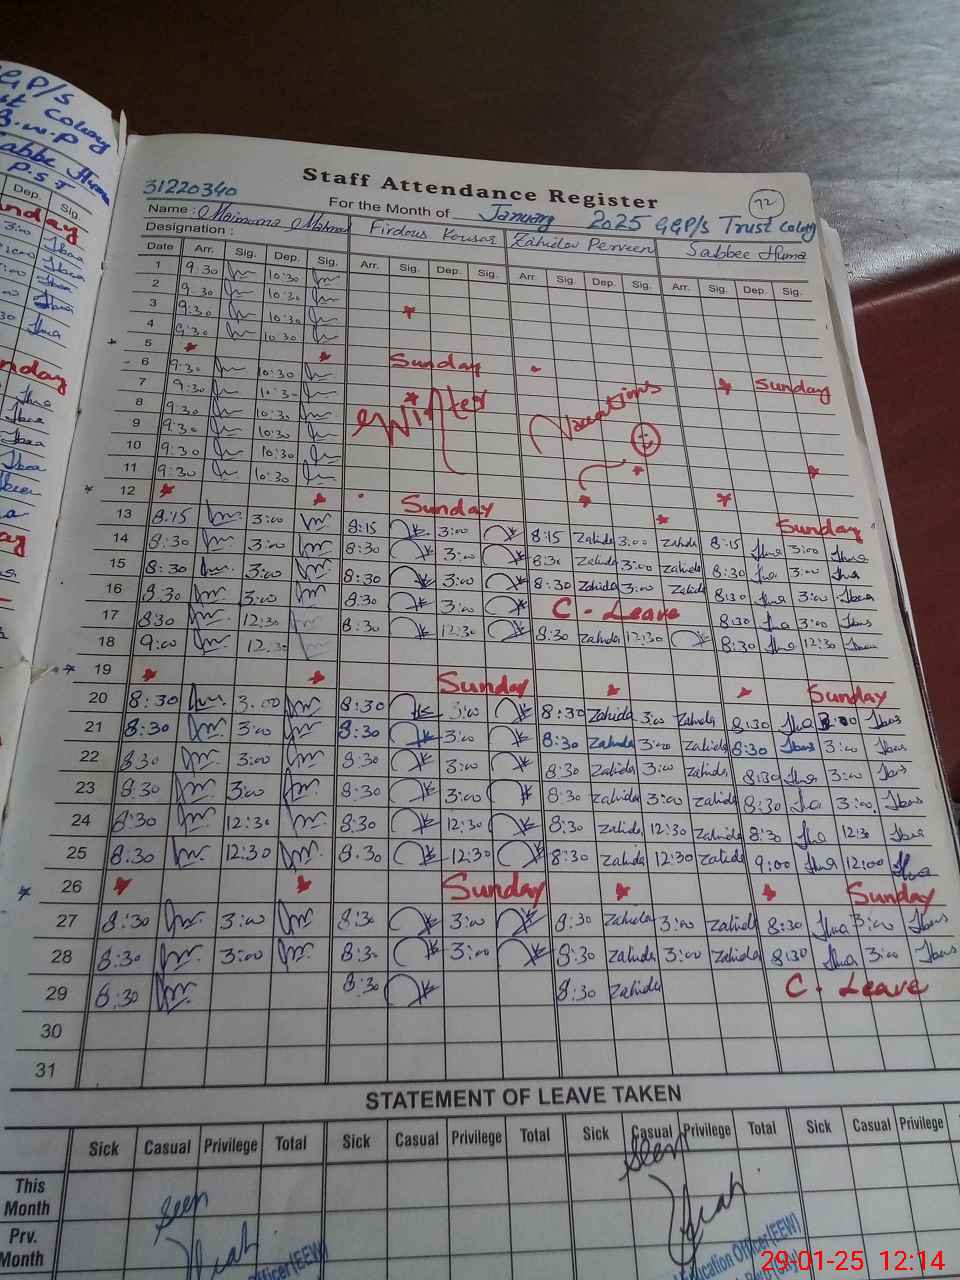 GGP/S
st Colony
B.w.P
Sabbe Huma
P.S.T
Dep. Sig.
Staff Attendance Register
31220340
For the Month of January 2025 GGP/S Trust Colony
72
Name: Maimuna Mahmod Firdous Kousar Zahida Perveen Sabbee Huma
Designation :
Date Arr. Sig. Dep. Sig. Arr. Sig. Dep. Sig. Arr. Sig. Dep. Sig. Arr. Sig. Dep. Sig.
1 9:30 10:30
2 9:30 10:30
3 9:30 10:30
4 9:30 10:30
5 Sunday Sunday
6 9:30 10:30
7 9:30 10:30
8 9:30 10:30
9 9:30 10:30
10 9:30 10:30
11 9:30 10:30
Winter Vacations
12 Sunday Sunday
13 8:15 3:00 8:15 3:00 8:15 Zahida 3:00 Zahida 8:15 Huma 3:00 Huma
14 8:30 3:00 8:30 3:00 8:30 Zahida 3:00 Zahida 8:30 Huma 3:00 Huma
15 8:30 3:00 8:30 3:00 8:30 Zahida 3:00 Zahida 8:30 Huma 3:00 Huma
16 8:30 3:00 8:30 3:00 C - Leave 8:30 Huma 3:00 Huma
17 8:30 12:30 8:30 12:30 8:30 Zahida 12:30 8:30 Huma 12:30 Huma
18 9:00 12:30
19 Sunday Sunday
20 8:30 3:00 8:30 3:00 8:30 Zahida 3:00 Zahida 8:30 Huma 3:00 Huma
21 8:30 3:00 8:30 3:00 8:30 Zahida 3:00 Zahida 8:30 Huma 3:00 Huma
22 8:30 3:00 8:30 3:00 8:30 Zahida 3:00 Zahida 8:30 Huma 3:00 Huma
23 8:30 3:00 8:30 3:00 8:30 Zahida 3:00 Zahida 8:30 Huma 3:00 Huma
24 8:30 12:30 8:30 12:30 8:30 Zahida 12:30 Zahida 8:30 Huma 12:30 Huma
25 8:30 12:30 8:30 12:30 8:30 Zahida 12:30 Zahida 9:00 Huma 12:00 Huma
26 Sunday Sunday
27 8:30 3:00 8:30 3:00 8:30 Zahida 3:00 Zahida 8:30 Huma 3:00 Huma
28 8:30 3:00 8:30 3:00 8:30 Zahida 3:00 Zahida 8:30 Huma 3:00 Huma
29 8:30 8:30 8:30 Zahida C - Leave
30
31
STATEMENT OF LEAVE TAKEN
Sick Casual Privilege Total Sick Casual Privilege Total Sick Casual Privilege Total Sick Casual Privilege
This Month
Seen Seen
Prv. Month
Officer (EEW) Education Officer (EEW)
29-01-25 12:14